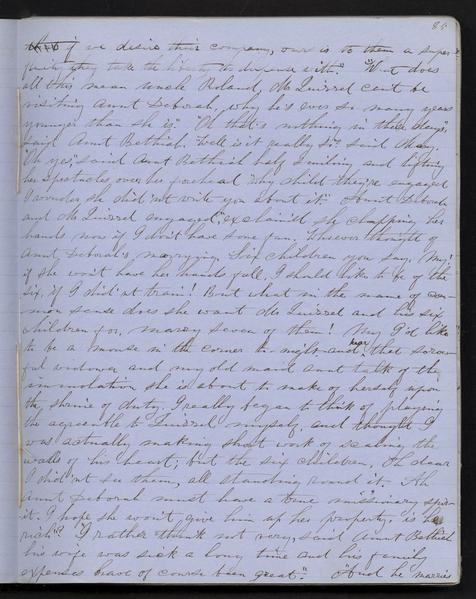 85
that if we desire their company, ours is to them a super-
fluity they take the liberty to dispense with." "What does
all this mean uncle Roland, Mr Quirrel can't be
visiting Aunt Deborah, why he's ever so many years
younger than she is." "Oh that's nothing in these days",
said Aunt Bethiah. "Well is it really so" said Mary.
"Oh yes," said Aunt Bethiah half smiling and lifting
her spectacles over her forehead "why child they're engaged
I wonder she did'nt write you about it." "Aunt Deborah
and Mr Quirrel engaged", exclaim'd she clapping her
hands, now if I don't have some fun. Whoever thought of
Aunt Deborah's marrying. Six children you say. My!
if she won't have her hands full. I should like to be of the
six, if I did'nt train! But what in the name of com-
mon sense does she want Mr Quirrel and his six
children for, marcy seven of them! My I'd like
to be a mouse in the corner to-night and hear that sorrow-
ful widower and my old maid aunt talk of the
immolation she is about to make of herself upon
the shrine of duty. I really began to think of playing
the agreeable to Quirrel myself, and thought I
was actually making short work of scaling the
walls of his heart; but the six children, Oh dear
I did'nt see them, all standing round it. Ah
Aunt Deborah must have a true missionary spir-
it. I hope she won't give him up her property, is he
rich?" "I rather think not very, said Aunt Bethiah
his wife was sick a long time and his family
expenses have of course been great." "And he marries